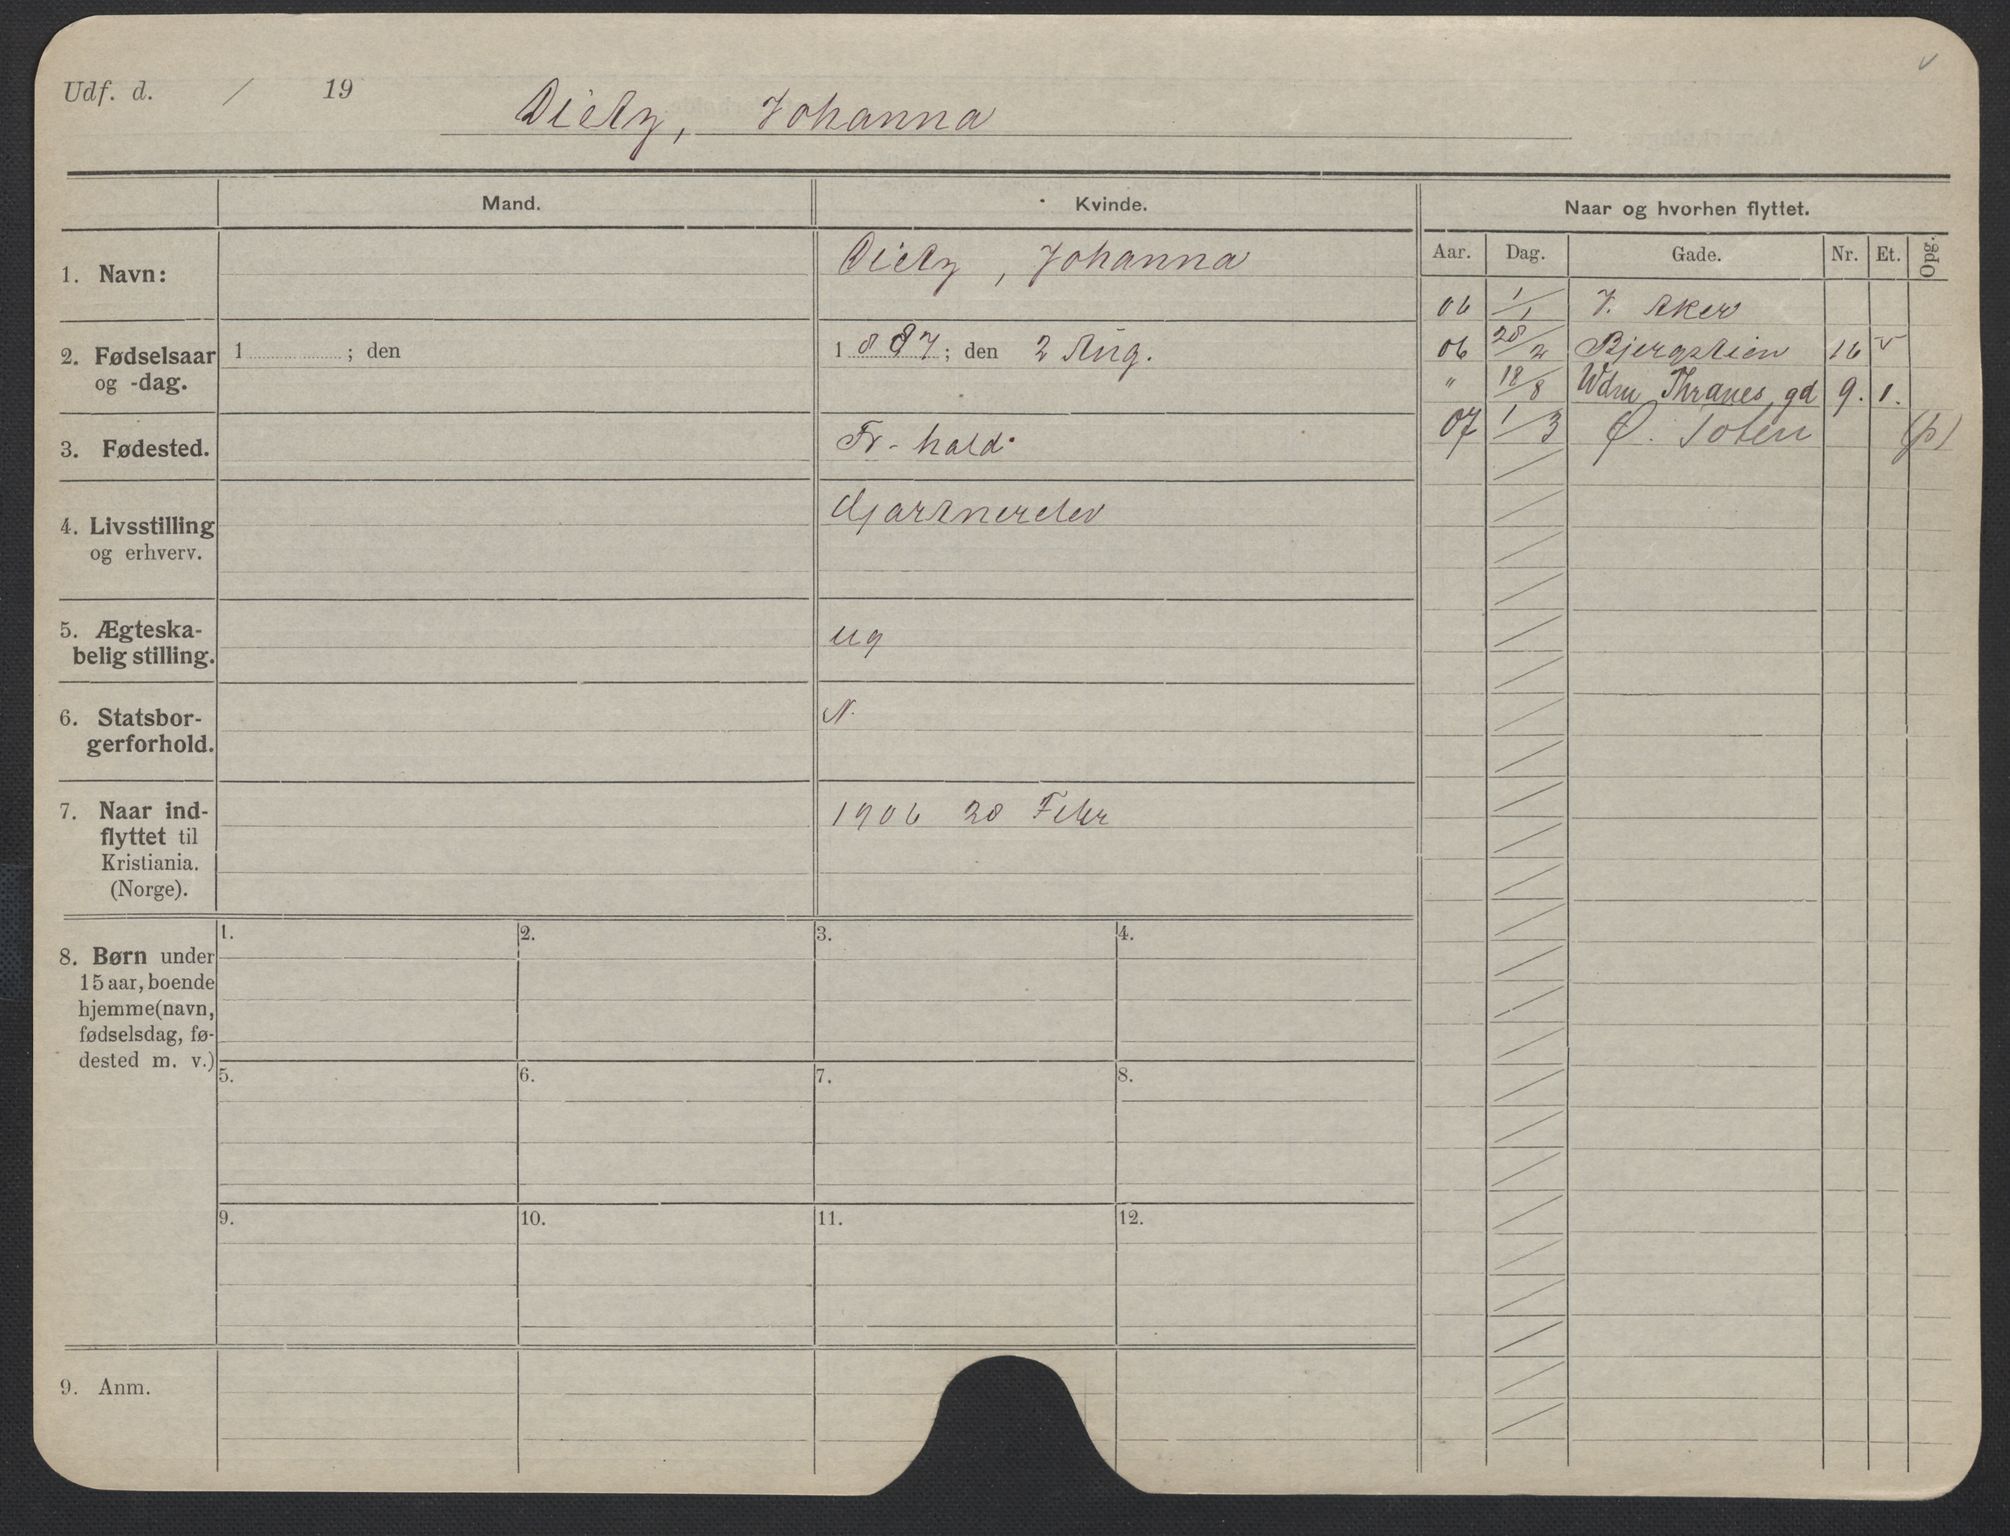 Udf. d. / 19
Dietz, Johanna
Mand. Kvinde. Naar og hvorhen flyttet.
Aar. Dag. Gade. Nr. Et. Opg.
1. Navn: Dietz, Johanna
06 1/1 V. Aker
2. Fødselsaar 1 ; den 1887 ; den 2 Aug.
og -dag.
06 28/2 Bjergstien 16 v
" 18/8 Wdm Thranes gd 9. 1.
3. Fødested. Fr-hald.
07 1/3 Ø. Toten (p)
4. Livsstilling Gartnerelev
og erhverv.
5. Ægteska-
belig stilling. ug
6. Statsbor-
gerforhold. N.
7. Naar ind- 1906 28 Febr
flyttet til
Kristiania.
(Norge).
8. Børn under
15 aar, boende
hjemme (navn,
fødselsdag, fø-
dested m. v.)
1. 2. 3. 4.
5. 6. 7. 8.
9. 10. 11. 12.
9. Anm.